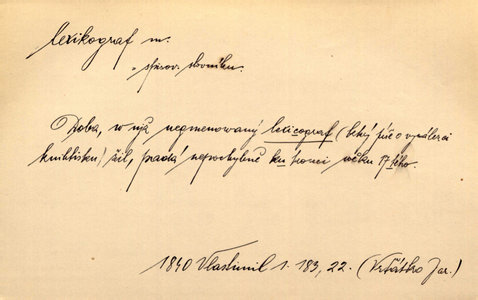 lexikograf m.
spisov. slovníku.
Doba, w njž negmenovaný lexicograf ( který již o vynálezci
knihtisku) žil, padá nepochybně ku konci věku 17tého.
1840 Vlastimil 1. 183, 22. (Vrťátko Jar.)